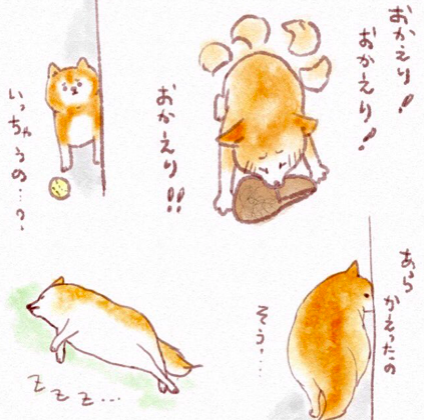 いっちゃうの…?、
おかえり!
おかえり!
おかえり!!
zzz…
あら
かえったの
そう…、